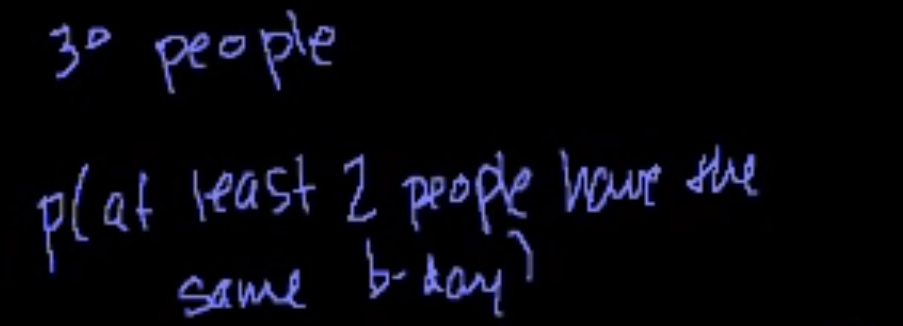 30 people
P(at least 2 people have the
same b-day)